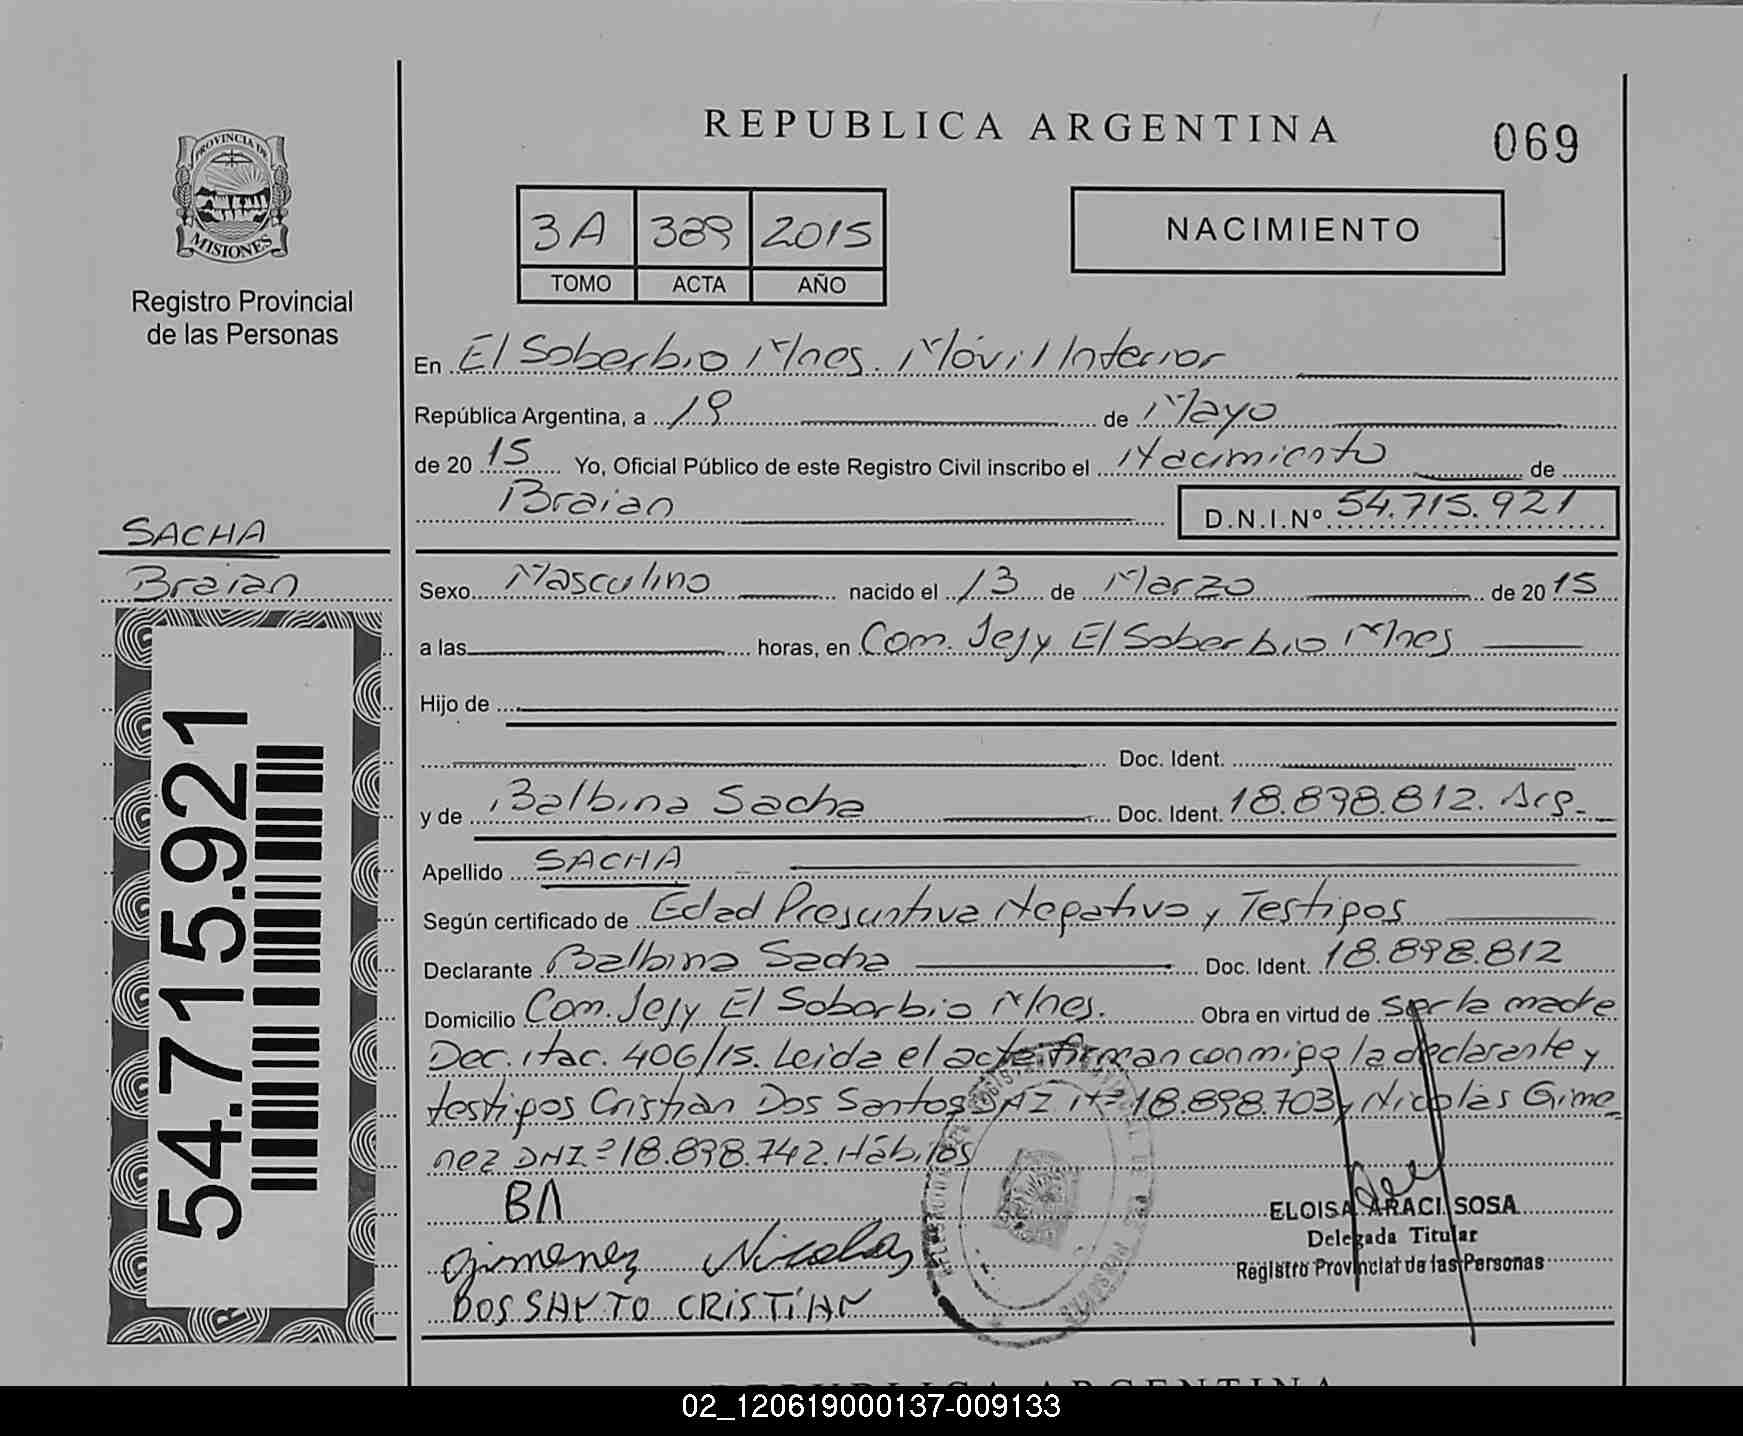 REPUBLICA ARGENTINA
069
PROVINCIA DE
MISIONES
Registro Provincial
de las Personas
3A 389 2015
TOMO ACTA AÑO
NACIMIENTO
En El Soberbio Mnes. Móvil Interior
República Argentina, a 19 de Mayo
de 20 15 Yo, Oficial Público de este Registro Civil inscribo el Nacimiento de
Braian
D.N.I.Nº 54.715.921
SACHA
Braian
54.715.921
Sexo Masculino nacido el 13 de Marzo de 20 15
a las horas, en Com. Jejy El Soberbio Mnes
Hijo de
Doc. Ident.
y de Balbina Sacha Doc. Ident. 18.898.812. Arg.
Apellido SACHA
Según certificado de Edad Presuntiva Negativo y Testigos
Declarante Balbina Sacha Doc. Ident. 18.898.812
Domicilio Com. Jejy El Soberbio Mnes. Obra en virtud de ser la madre
Dec. Nac. 406/15. Leida el acta firman conmigo la declarante y
testigos Cristian Dos Santos DNI Nº 18.898.703 y Nicolás Gime
nez DNI º 18.898.742. Hábiles
BA
gimenez Nicolas
DOS SANTO CRISTIAN
ELOISA ARACI SOSA
Delegada Titular
Registro Provincial de las Personas
REPUBLICA ARGENTINA
02_120619000137-009133